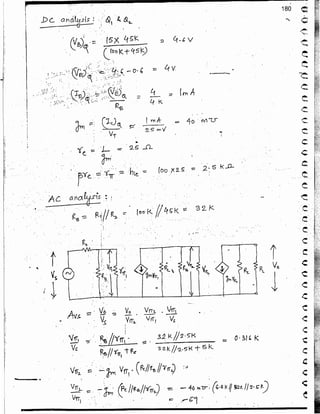 180
DC analysis : Q₁ & Q₂
(V_B)_Q = 15 × 45K / (100K + 45K) = 4.6 V
(V_E)_Q = 4.6 - 0.6 = 4V
(I_E)_Q = (V_E)_Q / R_E = 4 / 4K = 1mA
g_m = (I_C)_Q / V_T = 1mA / 25mV = 40 m℧
r_e = 1 / g_m = 25 Ω
βr_e = r_π = h_ie = 100 × 25 = 2.5 KΩ
AC analysis :
R_B = R₁ // R₂ = 100K // 45K = 32K
R_s
V_s
A_vs = V_o / V_s = V_o / V_π₂ · V_π₂ / V_π₁ · V_π₁ / V_s
V_π₁ / V_s = R_B // r_π₁ / R_B // r_π₁ + R_s = 32K // 2.5K / 32K // 2.5K + 5K = 0.316 K
V_π₂ = -g_m V_π₁ · (R_C // R_B // r_π₂)
V_π₂ / V_π₁ = -g_m (R_C // R_B // r_π₂) = -40 m℧